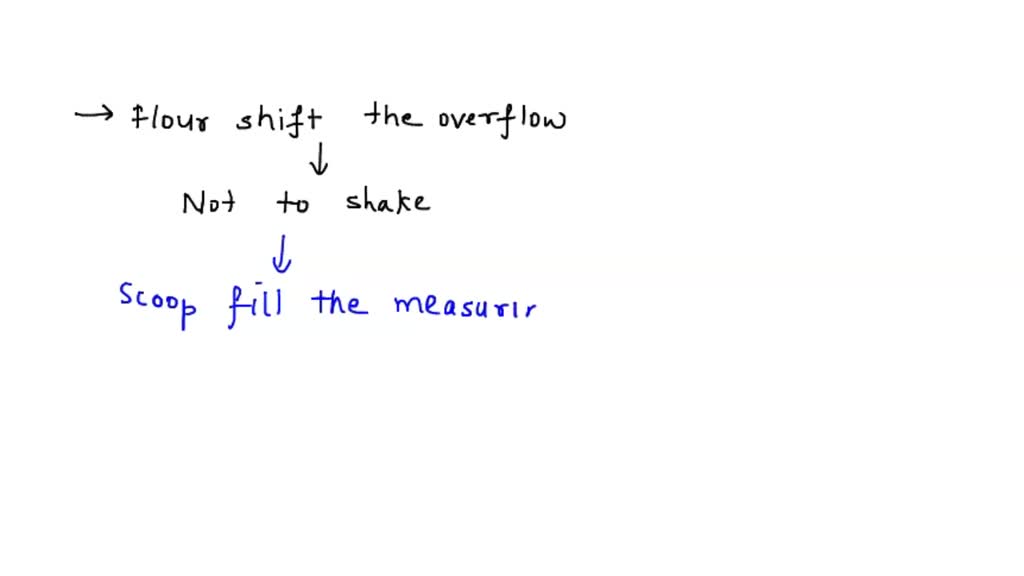 → flour shift the overflow
↓
Not to shake
↓
Scoop fill the measurir